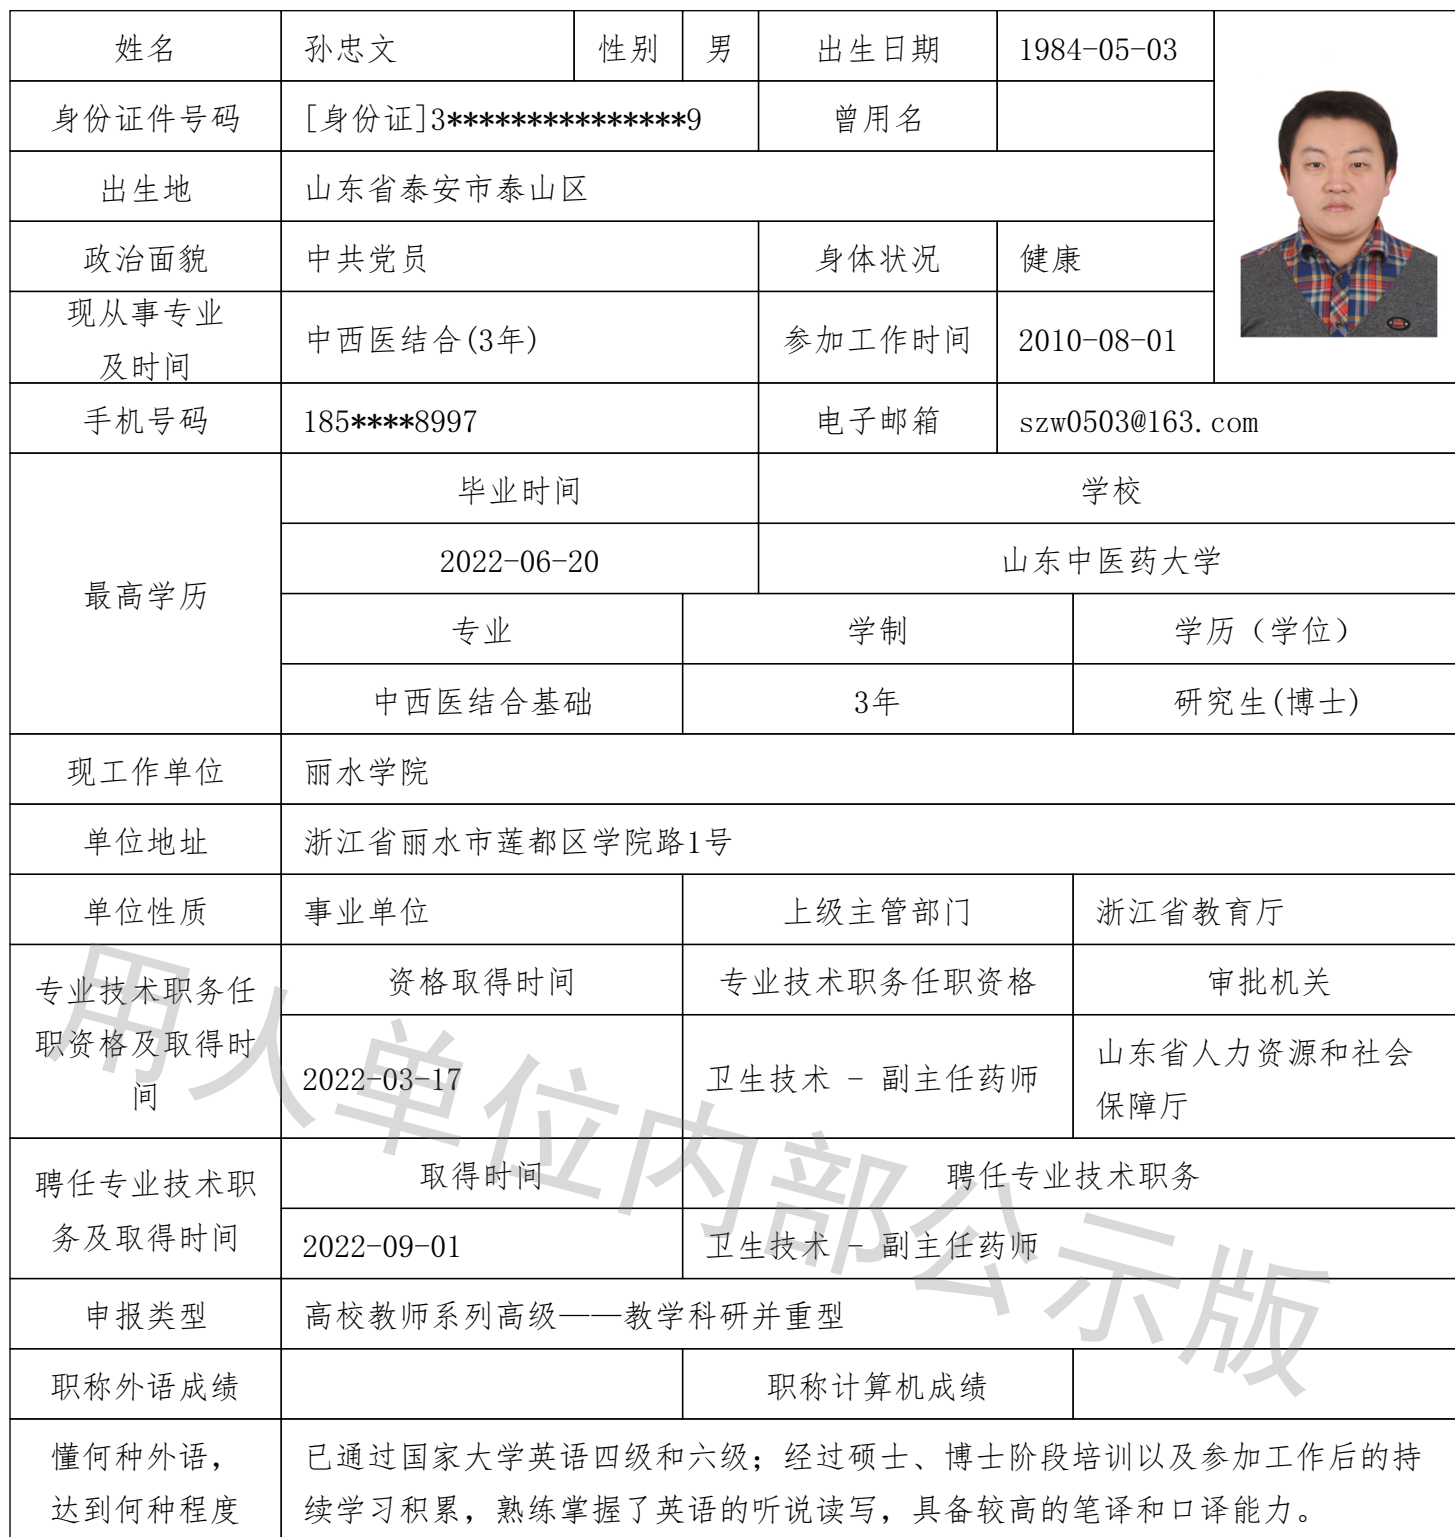 姓名 孙忠文 性别 男 出生日期 1984-05-03
身份证件号码 [身份证]3***************9 曾用名
出生地 山东省泰安市泰山区
政治面貌 中共党员 身体状况 健康
现从事专业
及时间 中西医结合(3年) 参加工作时间 2010-08-01
手机号码 185****8997 电子邮箱 szw0503@163.com
最高学历
毕业时间 学校
2022-06-20 山东中医药大学
专业 学制 学历（学位）
中西医结合基础 3年 研究生(博士)
现工作单位 丽水学院
单位地址 浙江省丽水市莲都区学院路1号
单位性质 事业单位 上级主管部门 浙江省教育厅
专业技术职务任
职资格及取得时
间
资格取得时间 专业技术职务任职资格 审批机关
2022-03-17 卫生技术 - 副主任药师 山东省人力资源和社会
保障厅
聘任专业技术职
务及取得时间
取得时间 聘任专业技术职务
2022-09-01 卫生技术 - 副主任药师
申报类型 高校教师系列高级——教学科研并重型
职称外语成绩 职称计算机成绩
懂何种外语，
达到何种程度
已通过国家大学英语四级和六级；经过硕士、博士阶段培训以及参加工作后的持
续学习积累，熟练掌握了英语的听说读写，具备较高的笔译和口译能力。
用人单位内部公示版